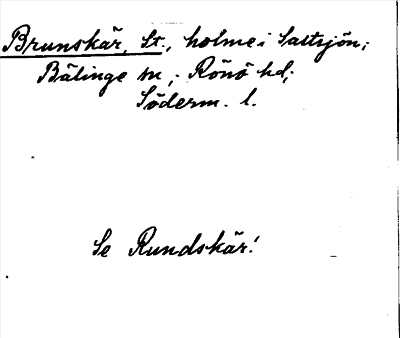 Brunskär, St., holme i Saltsjön;
Bälinge sn,; Rönö hd;
Söderm. l.
Se Rundskär!